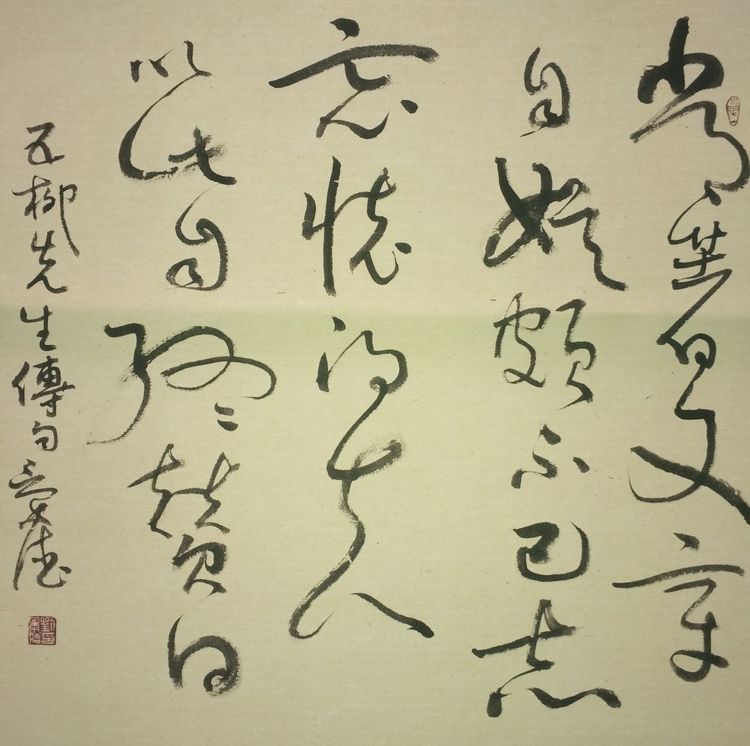 常著文章
自娱頗示己志
忘懷得失
以此自終贊曰
五柳先生傳句